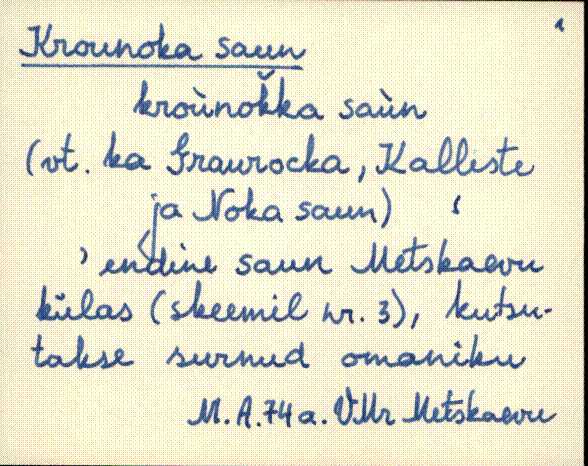 1
Krounoka saun
kroùnok̆ka saùn
(vt. ka Graurocka, Kalliste
ja Noka saun)
, endine saun Metskaevu
külas (skeemil nr. 3), kutsu-
takse surnud omaniku
M.A.74a. VMr Metskaevu